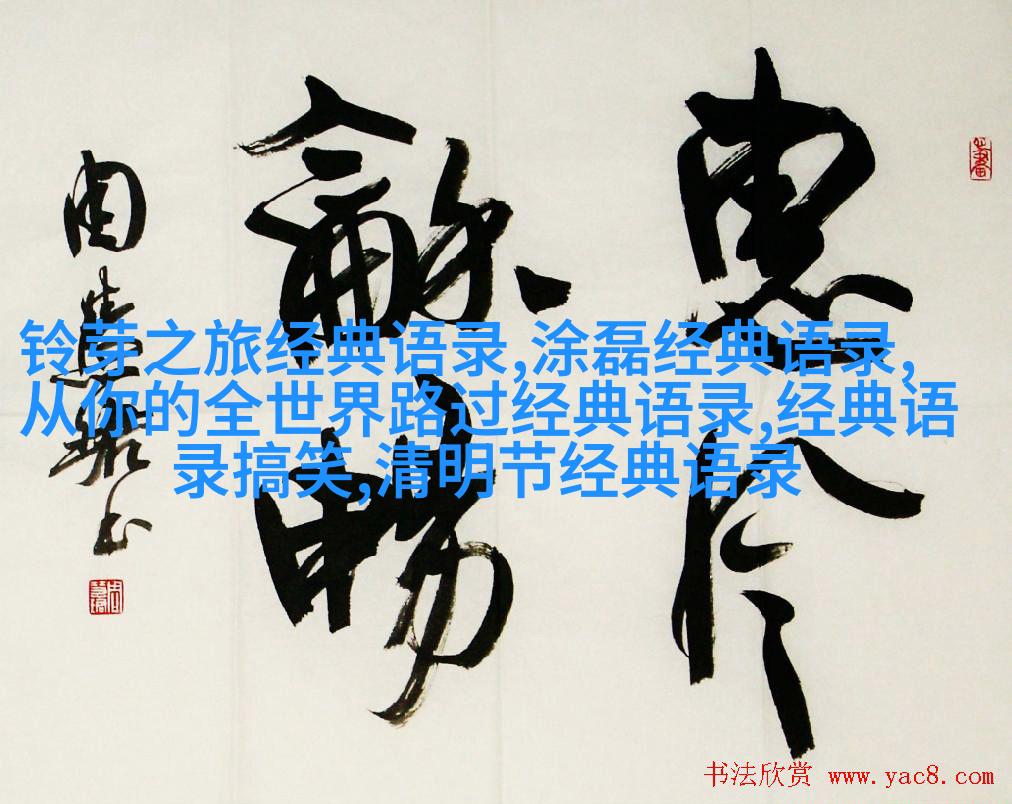 惠风
龢畅
周慧珺书
铃芽之旅经典语录,涂磊经典语录,
从你的全世界路过经典语录,经典语
录搞笑,清明节经典语录
书法欣赏 www.yac8.com